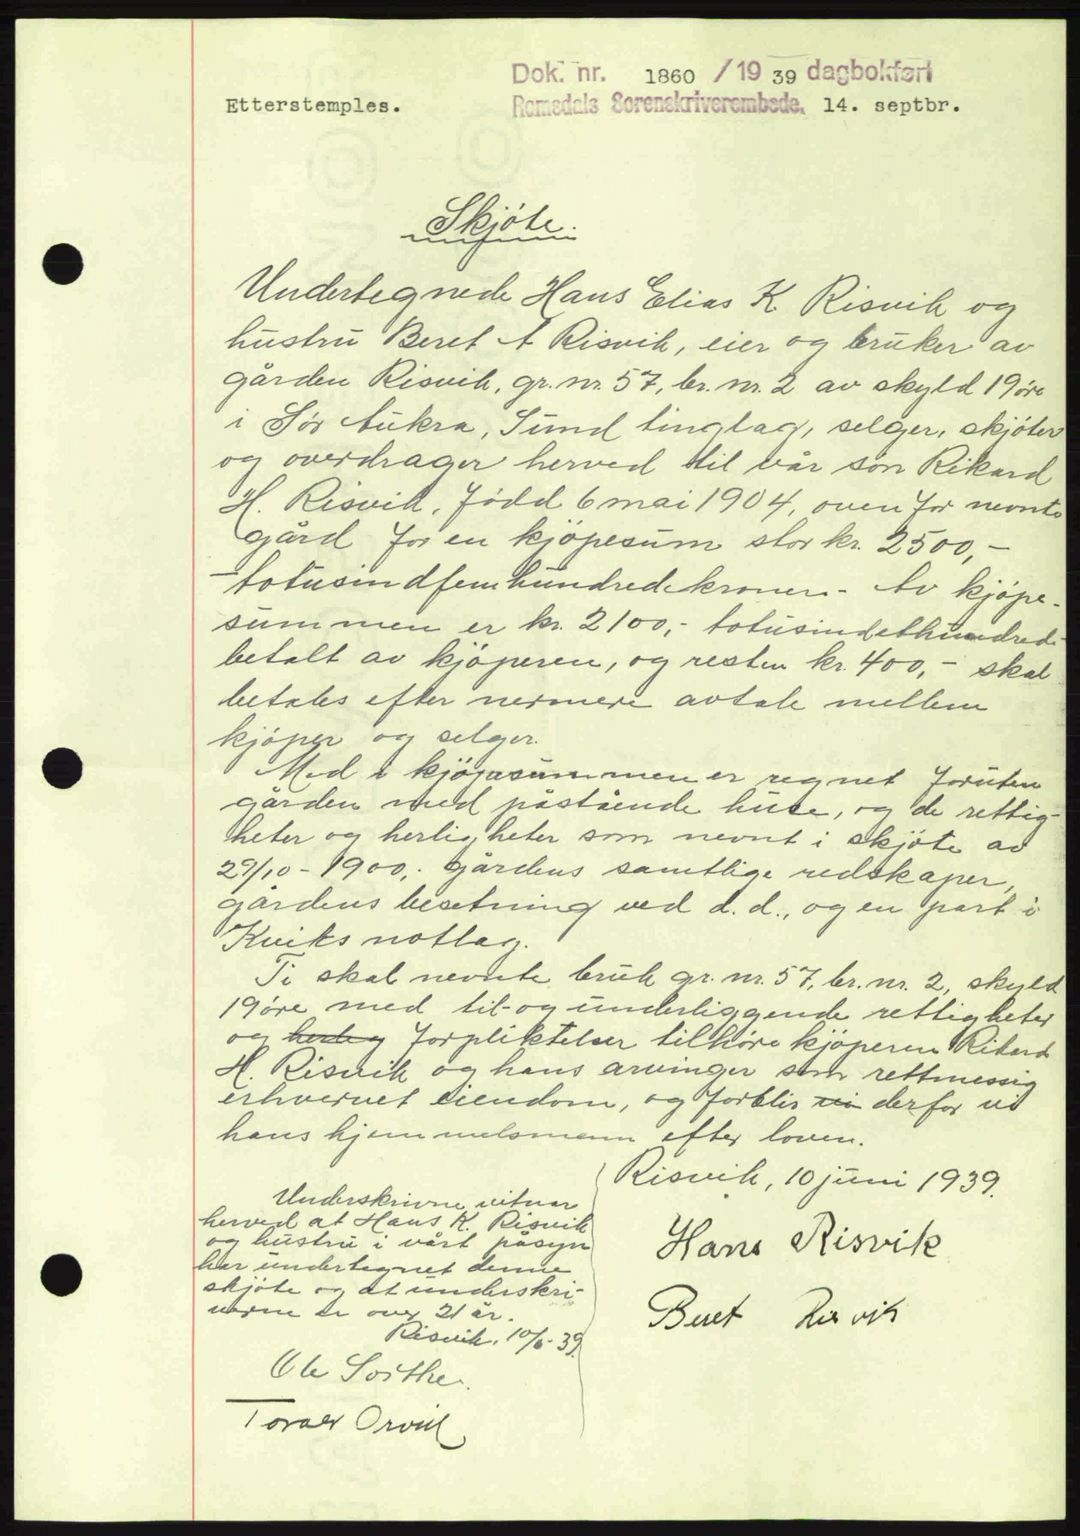 Dok. nr. 1860 / 19 39 dagbokført
Etterstemples.
Romsdals Sorenskriverembede. 14. septbr.
Skjöte.
Undertegnede Hans Elias K. Risvik og
hustru Beret A Risvik, eier og bruker av
gården Risvik, gr. nr. 57, br. nr. 2 av skyld 19 öre
i Sör Aukra, Sund tinglag, selger, skjöter
og overdrager herved til vår sön Rikard
H. Risvik, född 6 mai 1904, oven for nevnte
gård for en kjöpesum stor kr. 2500,-
- totusindfemhundredekroner - Av kjöpe-
summen er kr. 2100,- totusindethundrede
betalt av kjöperen, og resten kr. 400,- skal
betales efter nermere avtale mellem
kjöper og selger.
Med i kjöpesummen er regnet foruten
gården med påstående huse, og de rettig-
heter og herligheter som nevnt i skjöte av
29/10 - 1900,- gårdens samtlige redskaper,
gårdens besetning ved d. d., og en part i
Kviks notlag.
Ti skal nevnte bruk gr. nr. 57, br. nr. 2, skyld
19 öre med til- og underliggende rettigheter
og herlig forpliktelser tilhöre kjöperen Rikard
H. Risvik og hans arvinger som rettmessig
erhvervet eiendom, og forblir vi derfor vi
hans hjemmelsmenn efter loven.
Risvik, 10 juni 1939.
Hans Risvik
Beret Risvik
Underskrivne vitner
herved at Hans K. Risvik
og hustru i vårt påsyn
har undertegnet denne
skjöte og at underskri-
verne er over 21 år.
Risvik, 10/6-39.
Ole
Orvik